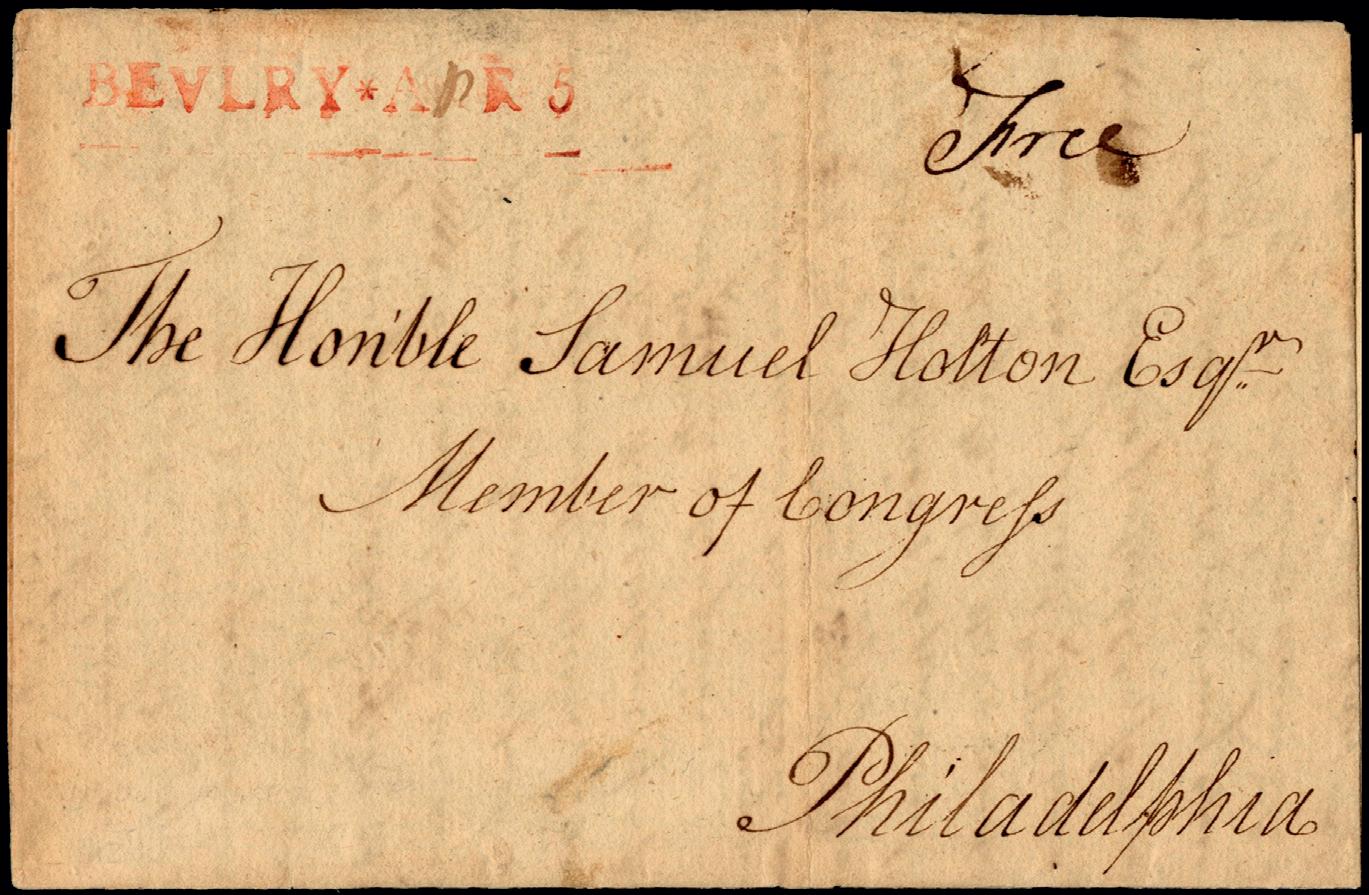 BEVLRY*APR 5
Free
The Hon'ble Samuel Holton Esqr
Member of Congreſs
Philadelphia